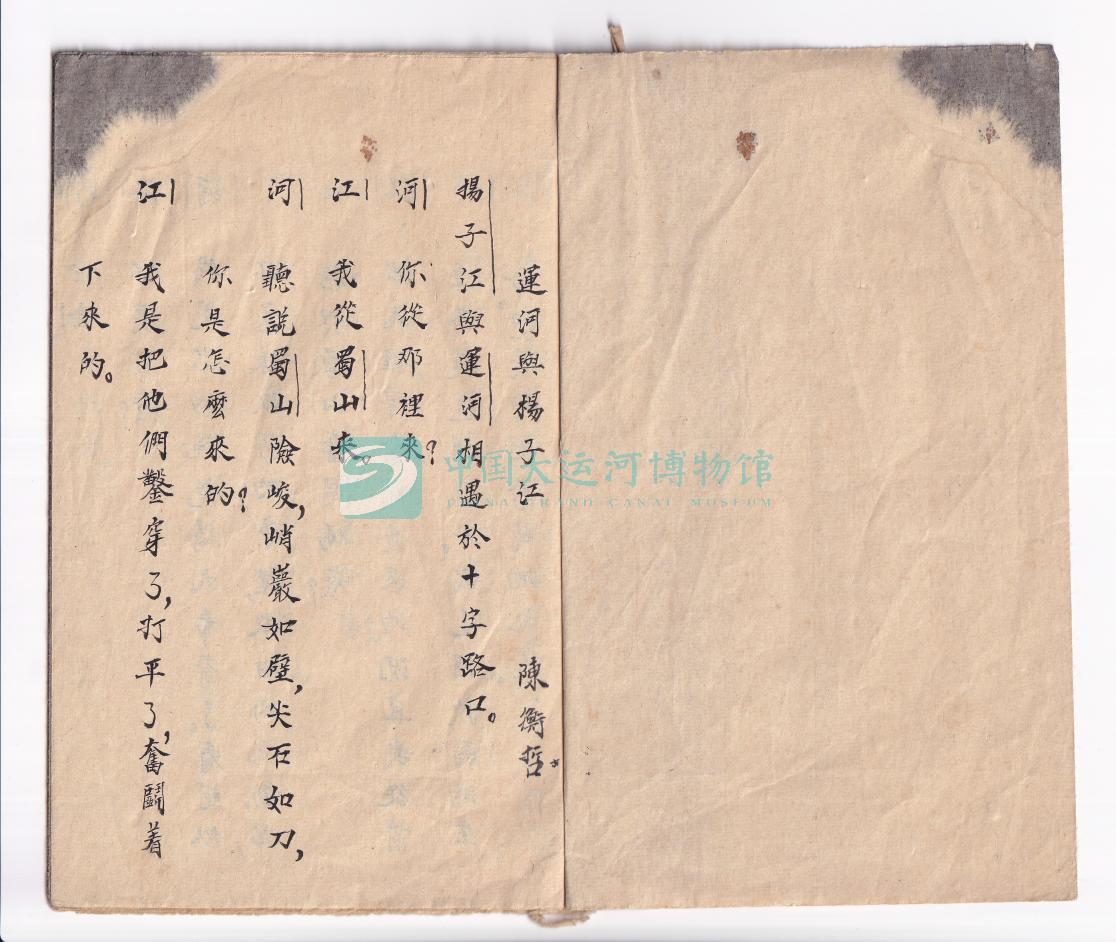 運河與楊子江
陳衡哲
揚子江與運河相遇於十字路口。
河 你從那裡來?
江 我從蜀山來。
河 聽説蜀山險峻,峭巖如壁,尖石如刀,
你是怎麽來的?
江 我是把他們鑿穿了,打平了,奮鬪着
下來的。
中国大运河博物馆
CHINA GRAND CANAL MUSEUM